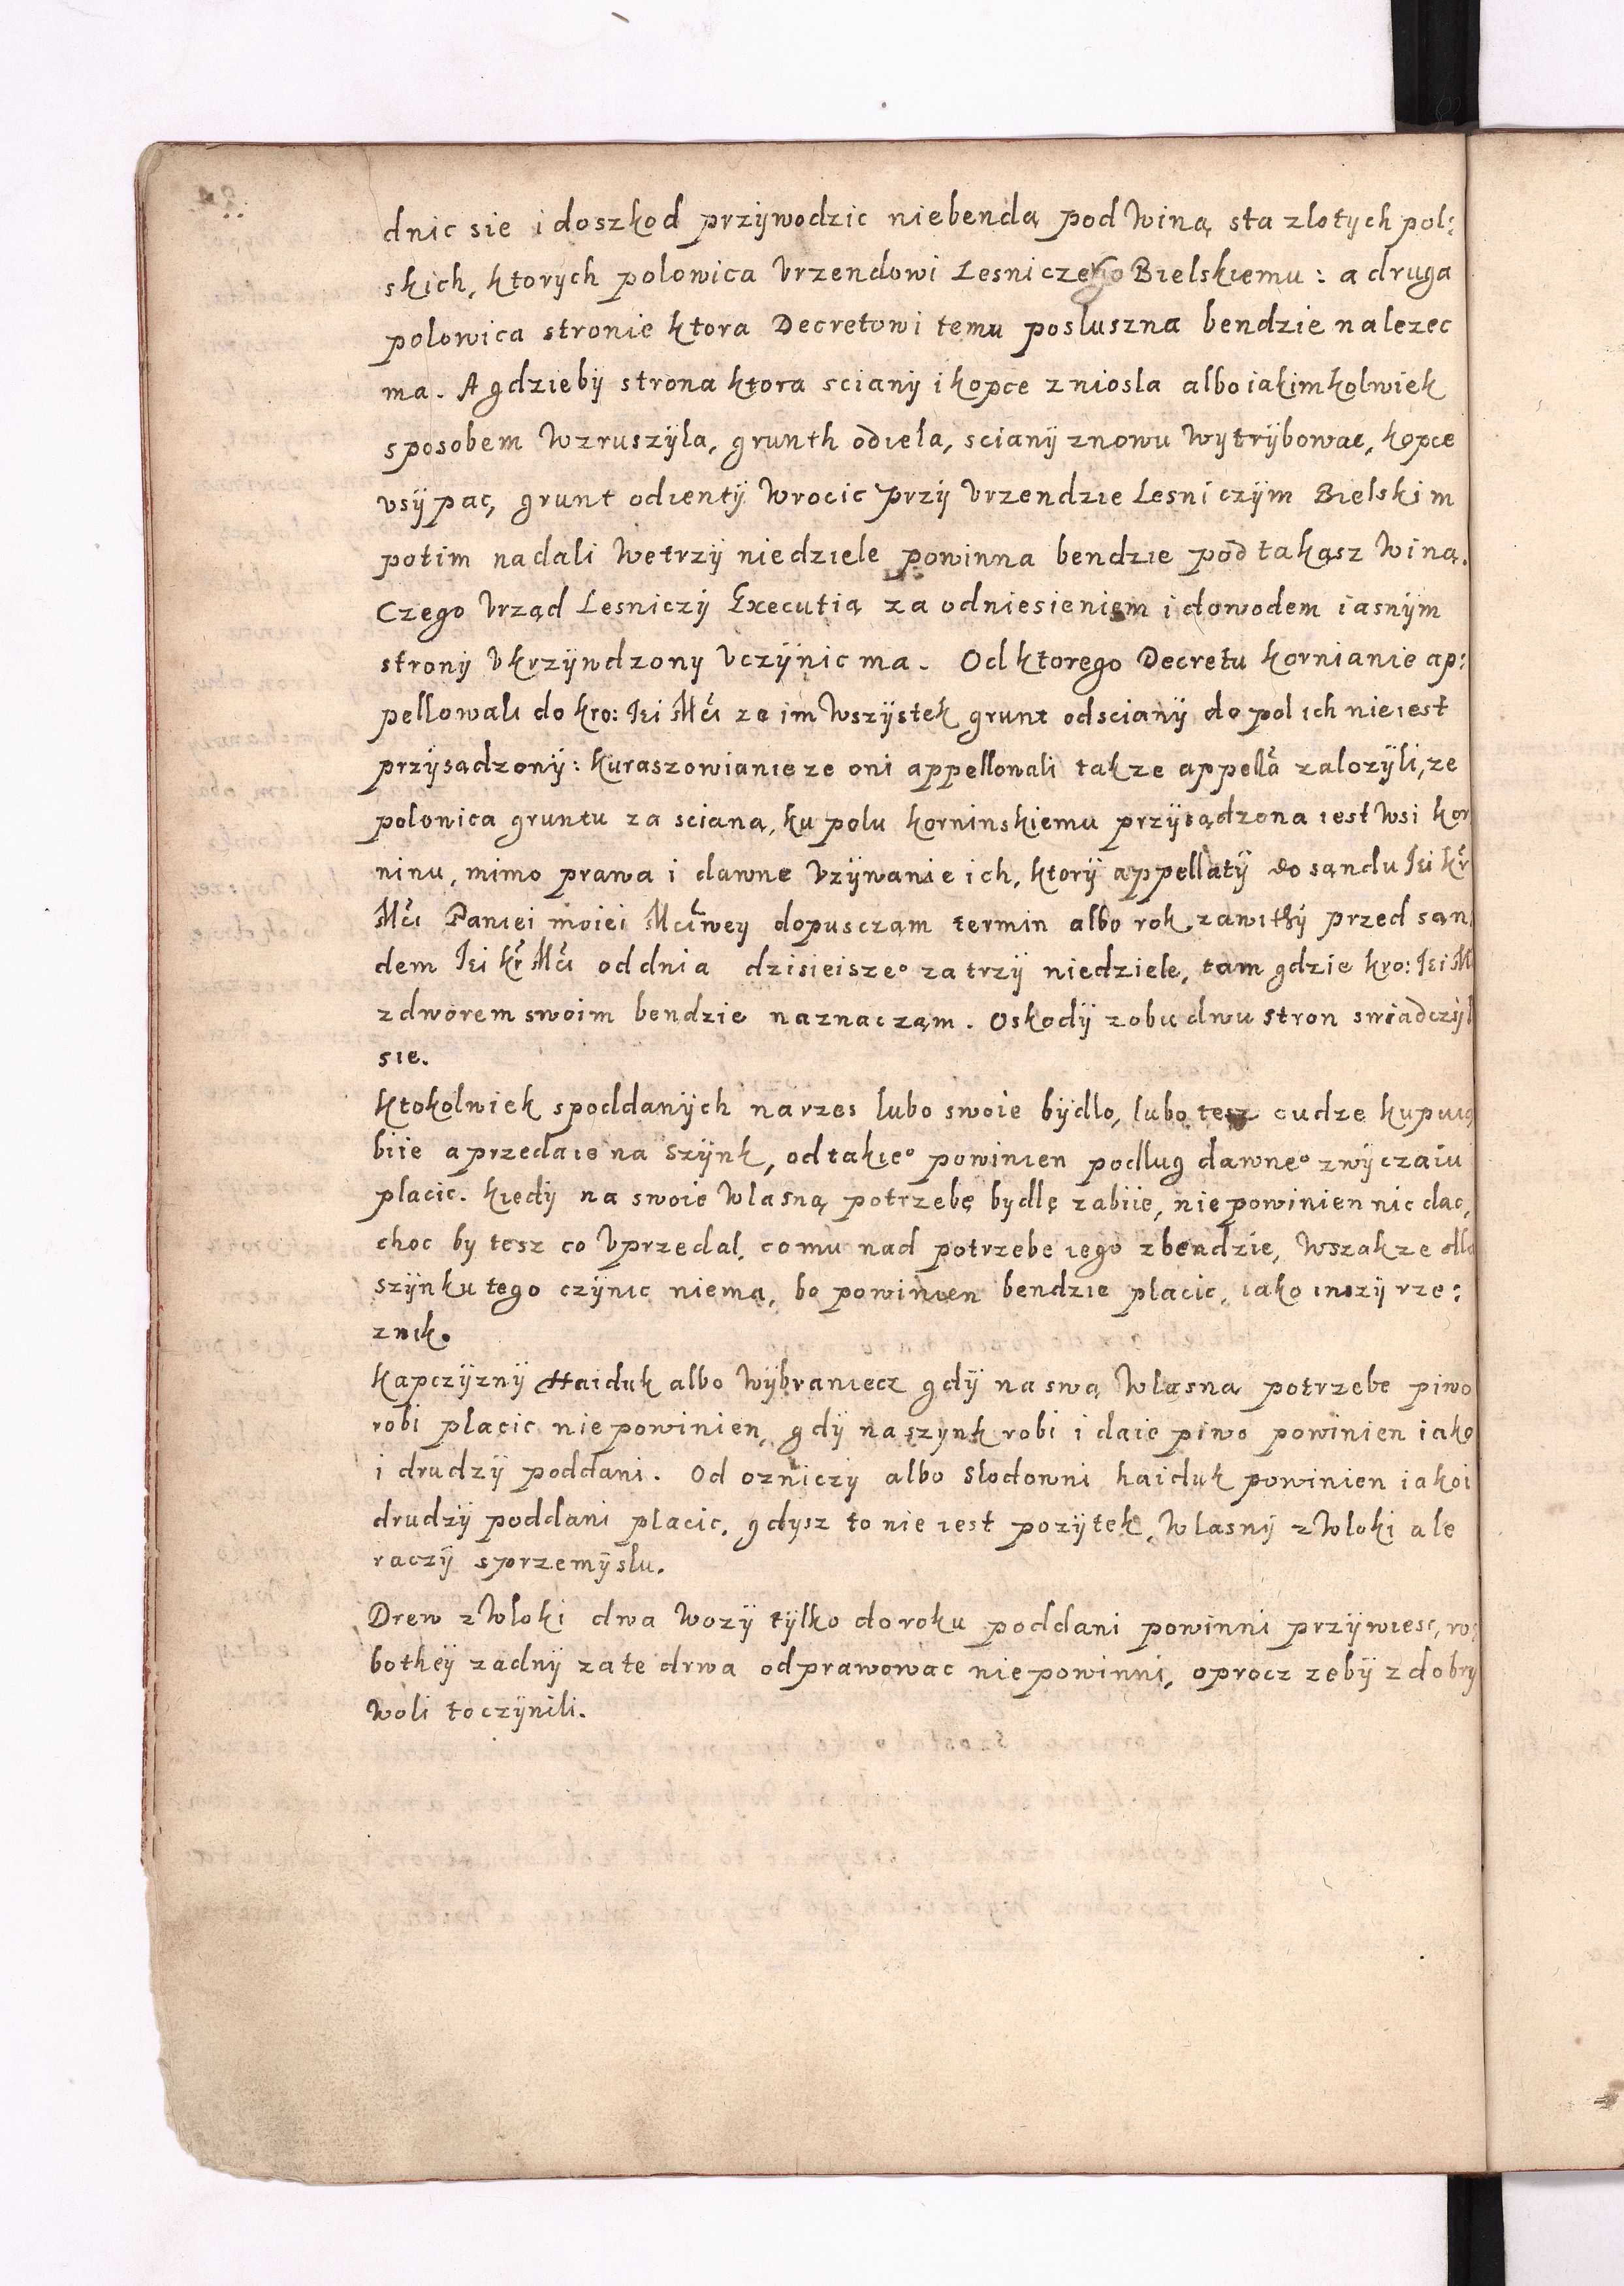 dnic sie i do szkod przÿwodzic niebendą pod winą sta zlotych pol:
skich, ktorych polowica Vrzendowi Lesniczego Bielskiemu: a druga
polowica stronie ktora Decretowi temu posluszna bendzie nalezec
ma. A gdziebÿ strona ktora scianÿ i kopce zniosla albo iakimkolwiek
sposobem wzruszÿla, grunth odiela, scianÿ znowu wytrÿbowac, kopce
vsÿpac, grunt odientÿ wrocic przÿ Vrzendzie Lesniczÿm Bielskim
potim nadali wetrzÿ niedziele powinna bendzie pod takąsz winą.
Czego Vrząd Lesniczÿ Executią za odniesieniem i dowodem iasnÿm
stronÿ Vkrzÿwdzony Vczÿnic ma. Od ktorego Decretu Kornianie ap:
pellowali do Kro: Iei Mci ze im wszÿstek grunt od scianÿ do pol ich nie iest
przÿsądzonÿ: Kuraszowianie ze oni appellowali takze appella zalozÿli, ze
polowica gruntu za scianą, ku polu Korninskiemu przÿsądzona iest wsi Kor
ninu, mimo prawa i dawne Vzÿwanie ich, ktorÿ appellatÿ do sandu Iei Kr
Mci Paniei moiei Mciwey dopusczam termin albo rok zawithÿ przed san
dem Iei Kr Mci od dnia dzisieisze° za trzÿ niedziele, tam gdzie Kro: Iei M
z dworem swoim bendzie naznaczam. O skodÿ z obu dwu stron swiadczÿl
sie.
Ktokolwiek s poddanÿch na rzes lubo swoie bÿdlo, lubo tesz cudze kupuią
biie a przedaie na szÿnk, od takie° powinien podlug dawne° zwÿczaiu
placic. Kiedÿ na swoie wlasną potrzebę bydlę zabiie, nie powinien nic dac,
choc by tesz co Vprzedal, co mu nad potrzebe iego zbendzie, wszakze dla
szÿnku tego czÿnic niema, bo powinien bendzie placic, iako inszÿ rze:
znik.
Kapczÿznÿ Haiduk albo wÿbraniecz gdÿ na swą wlasną potrzebe piwo
robi placic nie powinien, gdÿ na szynk robi i daie piwo powinien iako
i drudzÿ poddani. Od ozniczÿ albo Slodowni haiduk powinien iako i
drudzÿ poddani placic, gdysz to nie iest pozÿtek wlasnÿ z wloki ale
raczÿ s przemÿslu.
Drew z wloki dwa wozÿ tÿlko do roku poddani powinni przÿwiesc, ro:
bothëÿ zadnÿ za te drwa odprawowac nie powinni, oprocz zebÿ z dobry
woli to czÿnili.